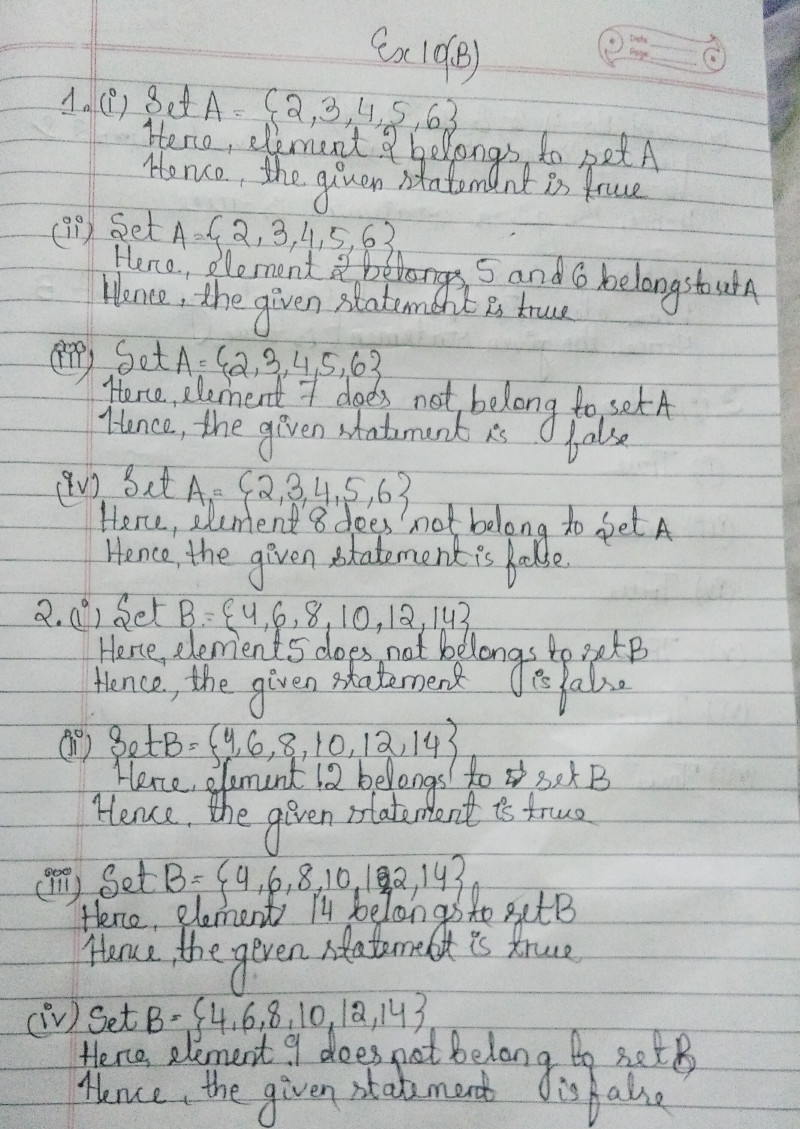 Ex 10(B)
Date
Page
1. (i) Set A = {2, 3, 4, 5, 6}
Here, element 2 belongs to set A
Hence, the given statement is true
(ii) Set A = {2, 3, 4, 5, 6}
Here, element 2 belongs, 5 and 6 belongs to set A
Hence, the given statement is true
(iii) Set A = {2, 3, 4, 5, 6}
Here, element 7 does not belong to set A
Hence, the given statement is false
(iv) Set A = {2, 3, 4, 5, 6}
Here, element 8 does not belong to set A
Hence, the given statement is false.
2. (i) Set B = {4, 6, 8, 10, 12, 14}
Here, element 5 does not belongs to set B
Hence, the given statement is false
(ii) Set B = {4, 6, 8, 10, 12, 14}
Here, element 12 belongs to set B
Hence, the given statement is true
(iii) Set B = {4, 6, 8, 10, 12, 14}
Here, element 14 belongs to set B
Hence, the given statement is true
(iv) Set B = {4, 6, 8, 10, 12, 14}
Here, element 9 does not belong to set B,
Hence, the given statement is false